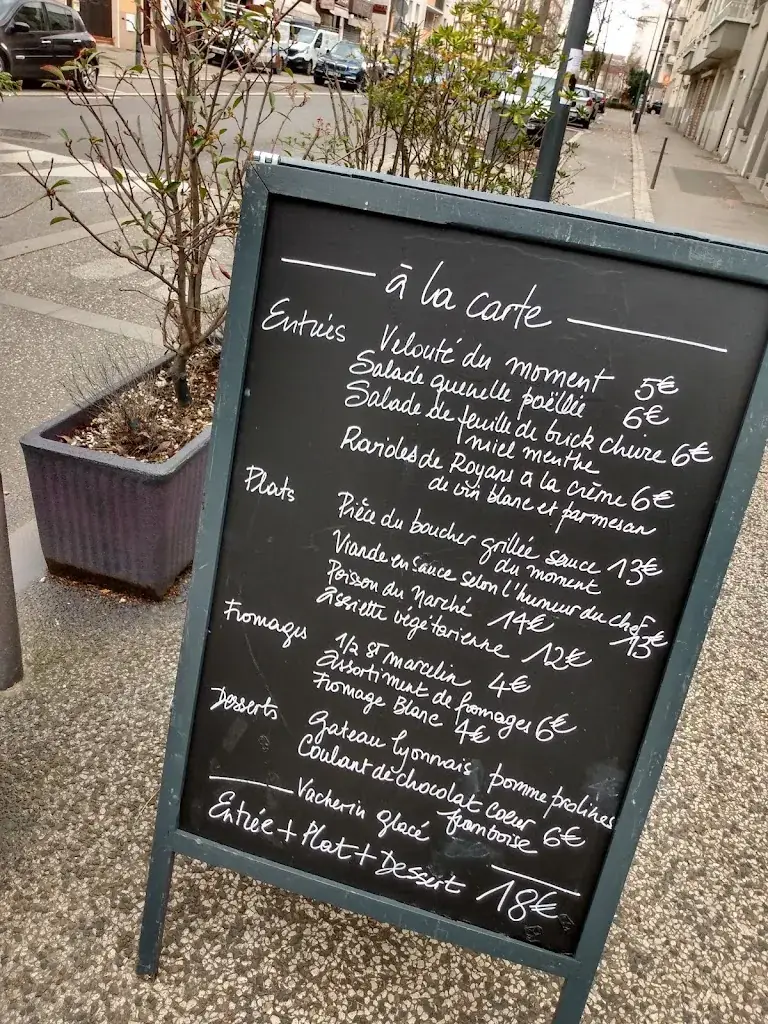 à la carte
Entrées
Velouté du moment 5€
Salade quenelle poëllée 6€
Salade de feuille de brick chèvre 6€
miel menthe
Ravioles de Royans à la crème 6€
de vin blanc et parmesan
Plats
Pièce du boucher grillée sauce 13€
du moment
Viande en sauce selon l'humeur du chef
13€
Poisson du marché 14€
Assiette végétarienne 12€
Fromages
1/2 St marcelin 4€
Assortiment de fromages 6€
Fromage Blanc 4€
Desserts
Gateau lyonnais pomme prolines
Coulant de chocolat Cœur
framboise 6€
Vacherin glacé
Entrée + Plat + Dessert 18€